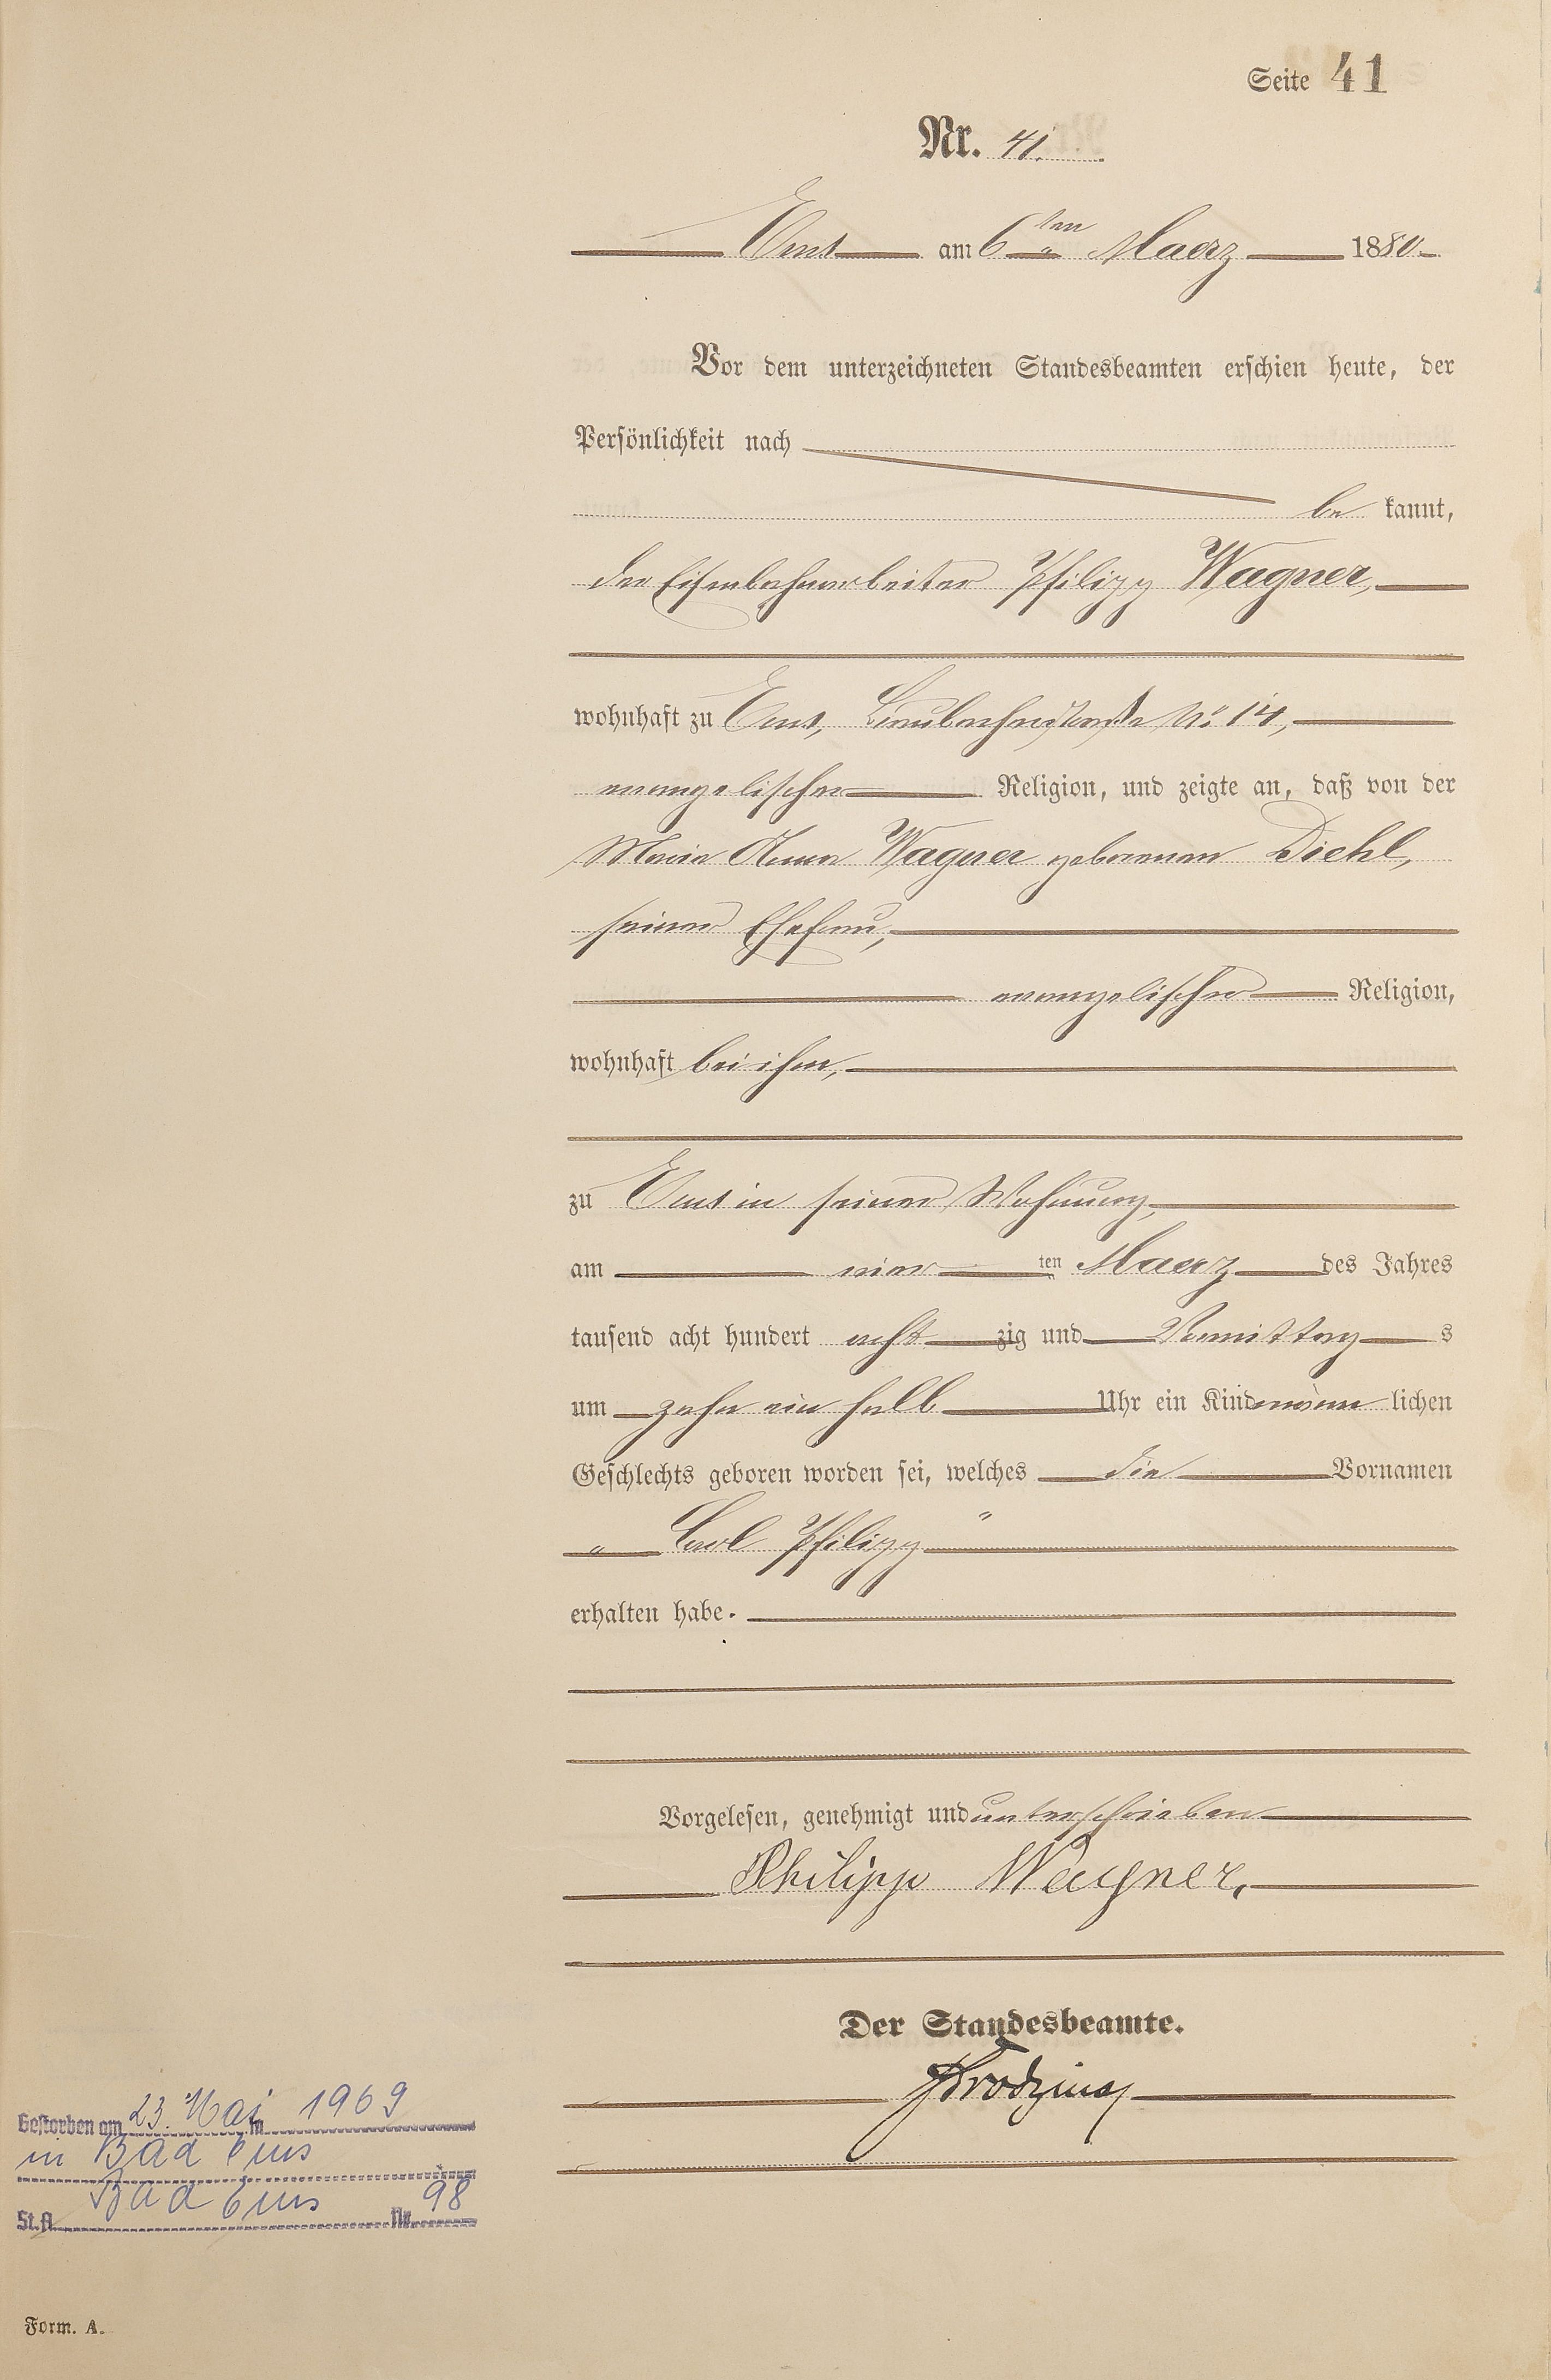 Seite 41
Nr. 41.
Ems am 6ten Maerz 1880
Vor dem unterzeichneten Standesbeamten erschien heute, der
Persönlichkeit nach
be kannt,
der Eisenbahnarbeiter Philipp Wagner,
wohnhaft zu Ems, No: 14,
evangelischer Religion, und zeigte an, daß von der
Maria Anna Wagner geborenen Diehl,
seiner Ehefrau,
evangelischer Religion,
wohnhaft bei ihm,
zu Ems in seiner Wohnung,
am vier ten Maerz des Jahres
tausend acht hundert acht zig und Vormittag s
um zehn ein halb Uhr ein Kind männ lichen
Geschlechts geboren worden sei, welches die Vornamen
„ Carl Philipp "
erhalten habe.
Vorgelesen, genehmigt und unterschrieben
Philipp Wagner.
Der Standesbeamte.
Gestorben am 23. Mai 1969
in Bad Ems
St.A. Bad Ems Nr. 98
Form. A.